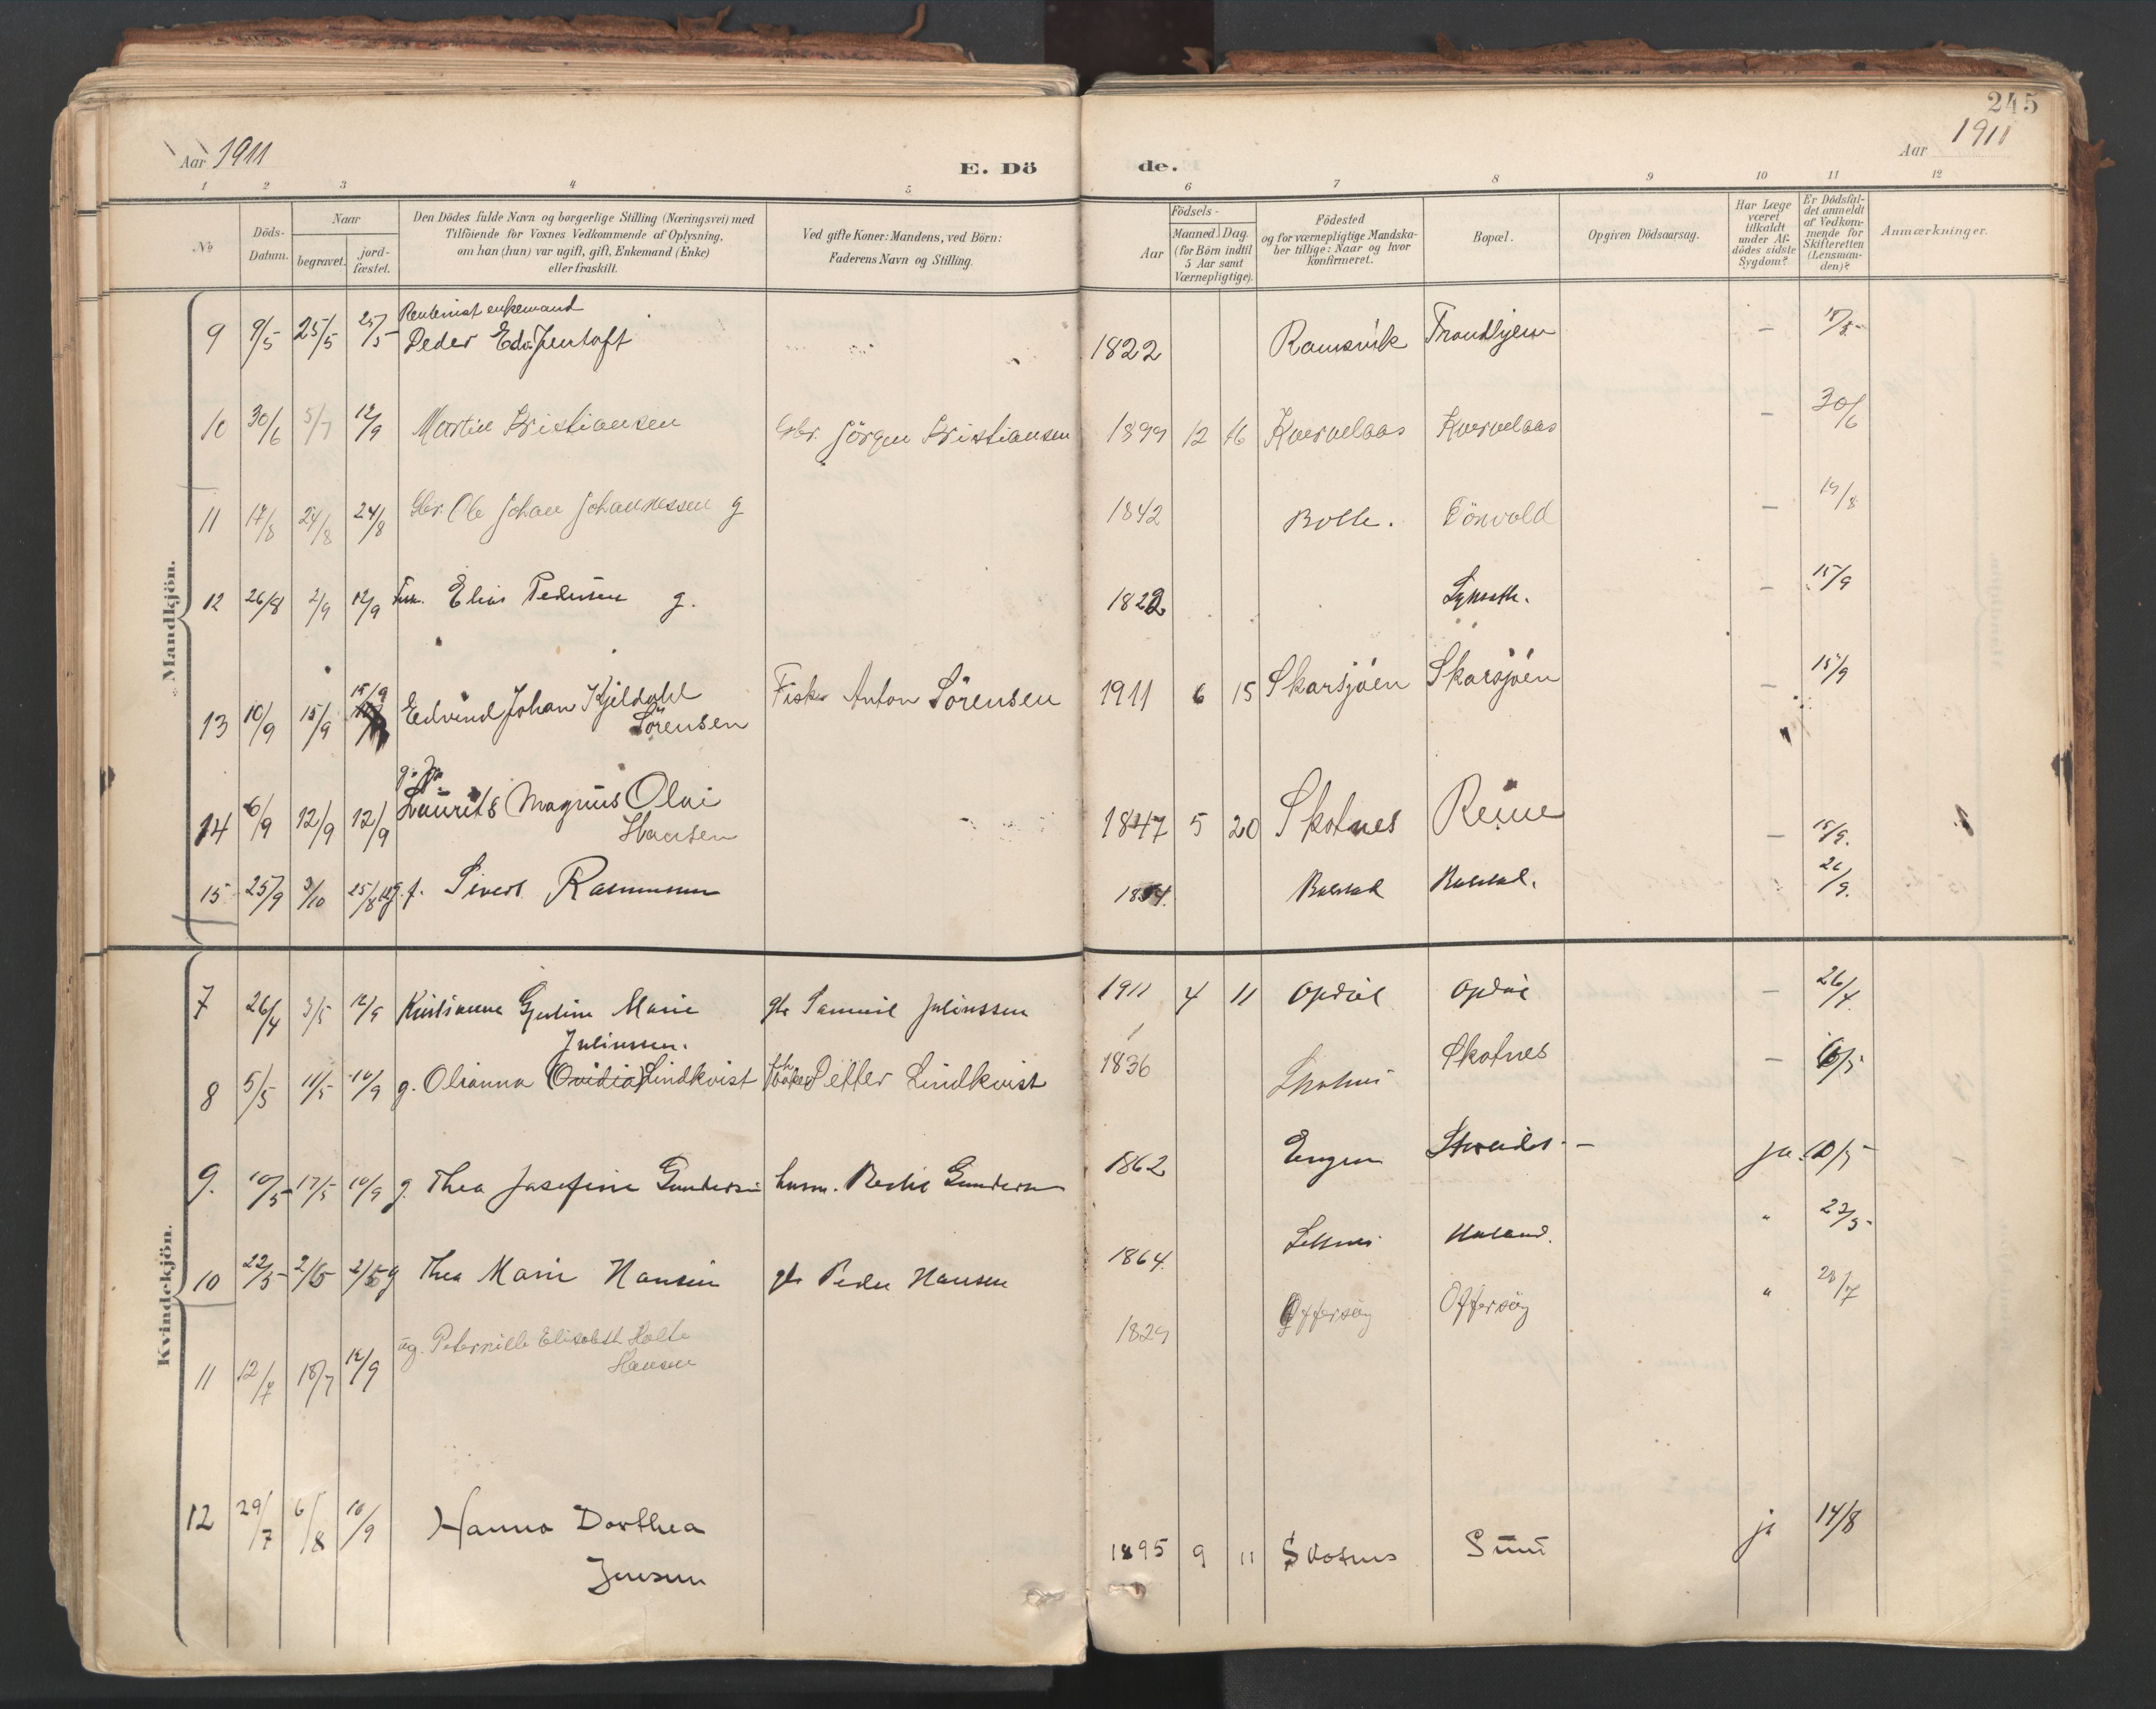 245
Aar 1911
E. Dö
de.
Aar 1911
1 2 3 4 5 6 7 8 9 10 11 12
No
Döds-
Datum.
Naar
begravet.
jord-
fæstet.
Den Dödes fulde Navn og borgerlige Stilling (Næringsvei) med
Tilföiende for Voxnes Vedkommende af Oplysning,
om han (hun) var ugift, gift, Enkemand (Enke)
eller fraskilt.
Ved gifte Koner: Mandens, ved Börn:
Faderens Navn og Stilling.
Födsels-
Aar
Maaned. Dag.
(for Börn indtil
5 Aar samt
Værnepligtige).
Födested
og for værnepligtige Mandska-
ber tillige: Naar og hvor
konfirmeret.
Bopæl.
Opgiven Dödsaarsag.
Har Læge
været
tilkaldt
under Af-
dödes sidste
Sygdom?
Er Dödsfal-
det anmeldt
af Vedkom-
mende for
Skifteretten
(Lensman-
den)?
Anmærkninger.
Mandkjön.
Rentenist enkemand
9 9/5 25/5 25/5 Peder Edv. Jentoft 1822 Ramsvik Trondhjem –
10 30/6 5/7 12/9 Martin Kristiansen Gbr. Jörgen Kristiansen 1899 12 16 Kvervelaas Kvervelaas – 30/6
11 17/8 24/8 24/8 Gbr. Ole Johan Johannessen g 1842 Bolle. – 19/8
12 26/8 2/9 12/9 Elias Pedersen g. – 15/9
13 10/9 15/9 15/9 Edvind Johan Kjeldahl Fisker Anton Sörensen 1911 6 15 Skarsjöen Skarsjöen – 15/9
Sörensen
g.
14 6/9 12/9 12/9 Laurits Magnus Olai 1847 5 20 Skotnes Reine – 15/9.
Hansen
15 25/9 3/10 25/8 ug. f. Sivert Rasmussen Balstad Balstad. 26/9.
Kvindekjön.
7 26/4 3/5 12/9 Kristianna Gjertine Marie gbr Samuel Juliussen 1911 4 11 Opdöl Opdöl – 26/4.
Juliussen.
8 5/5 11/5 10/9 g. Olianna (Ovidia) Lindkvist Petter Lindkvist 1836 Skotnes Skotnes – 6/5
9. 10/5 17/5 10/9 g. Thea Josefine Gundersen husm. Gundersen 1862 Engen – ja. 10/5
10 22/5 2/6 g Thea Marie Hansen gbr Peder Hansen 1864. " 22/5
11 12/7 18/7 12/9 ug. Peternille Elisabeth Holte 1829 Offersöy Offersöy " 20/7
Hansen
12 29/7 6/8 10/9 Hanna Dorthea 1895 9 11 Skotnes Sund ja 14/8
Jensen